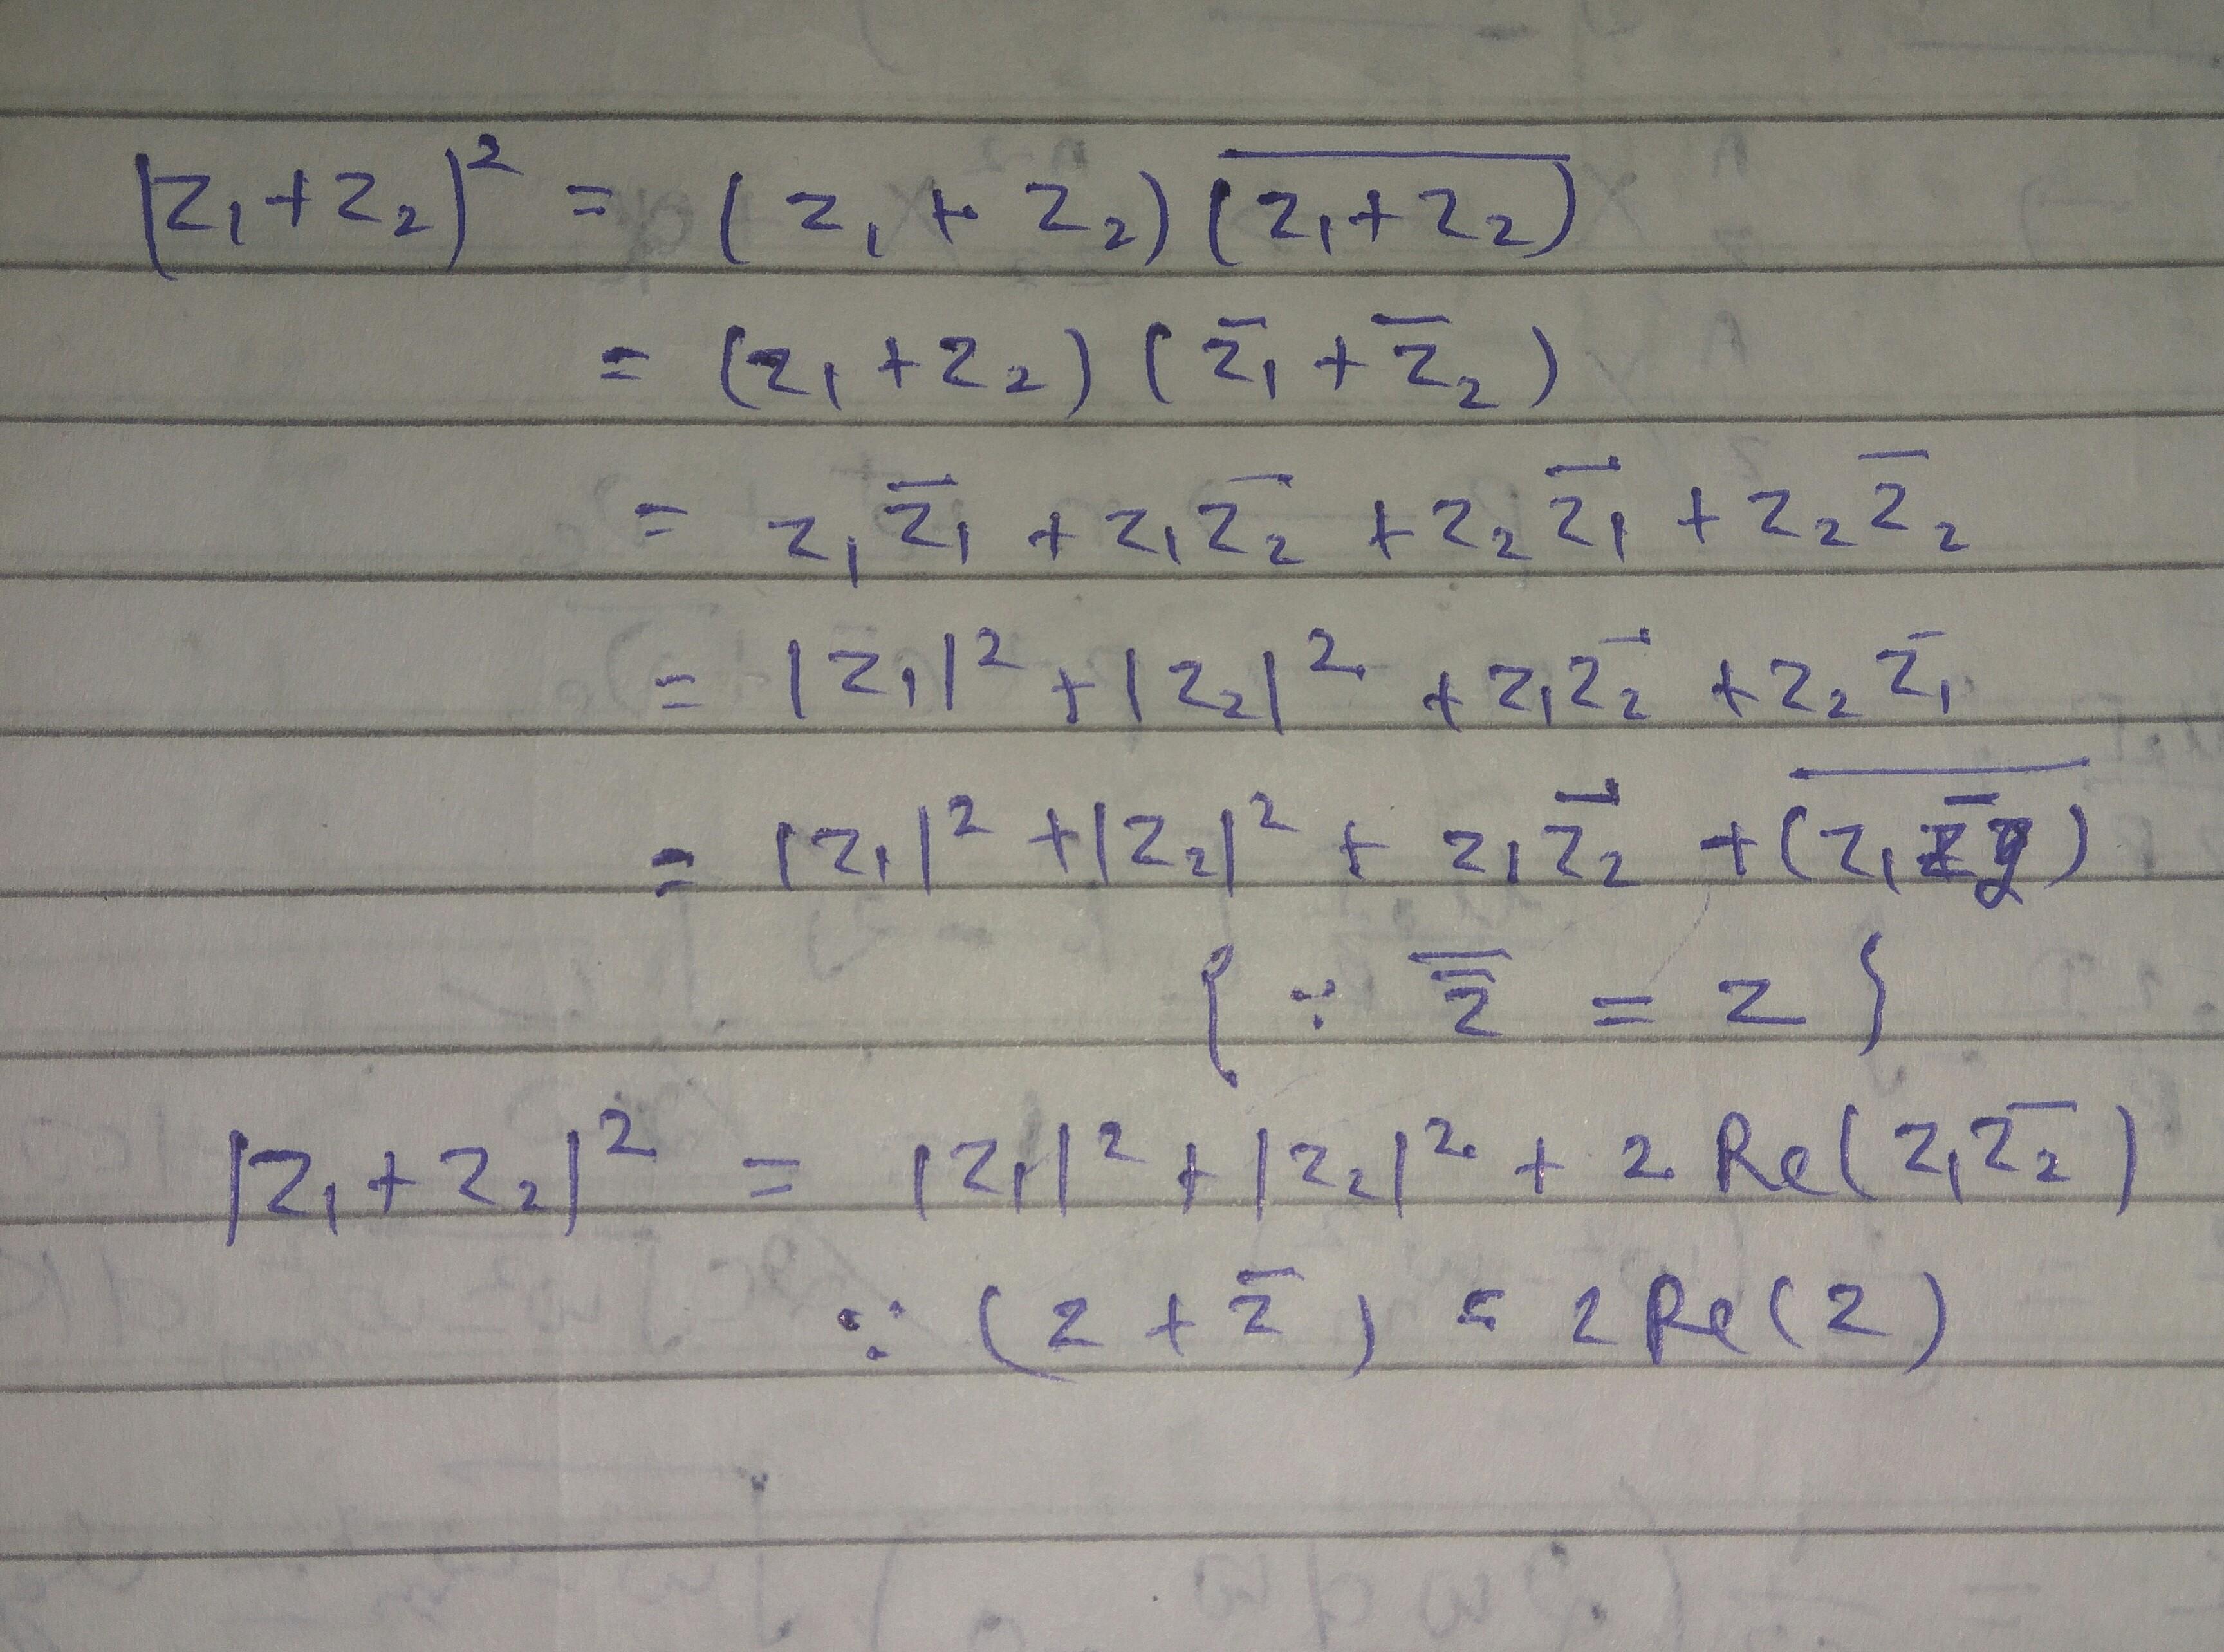 |z₁+z₂|² = (z₁+z₂)(z₁+z₂)‾
= (z₁+z₂)(z̄₁+z̄₂)
= z₁z̄₁ + z₁z̄₂ + z₂z̄₁ + z₂z̄₂
= |z₁|² + |z₂|² + z₁z̄₂ + z₂z̄₁
= |z₁|² + |z₂|² + z₁z̄₂ + (z₁z̄₂)‾
{ ∵ z̿ = z }
|z₁+z₂|² = |z₁|² + |z₂|² + 2 Re(z₁z̄₂)
∵ (z + z̄) = 2Re(z)